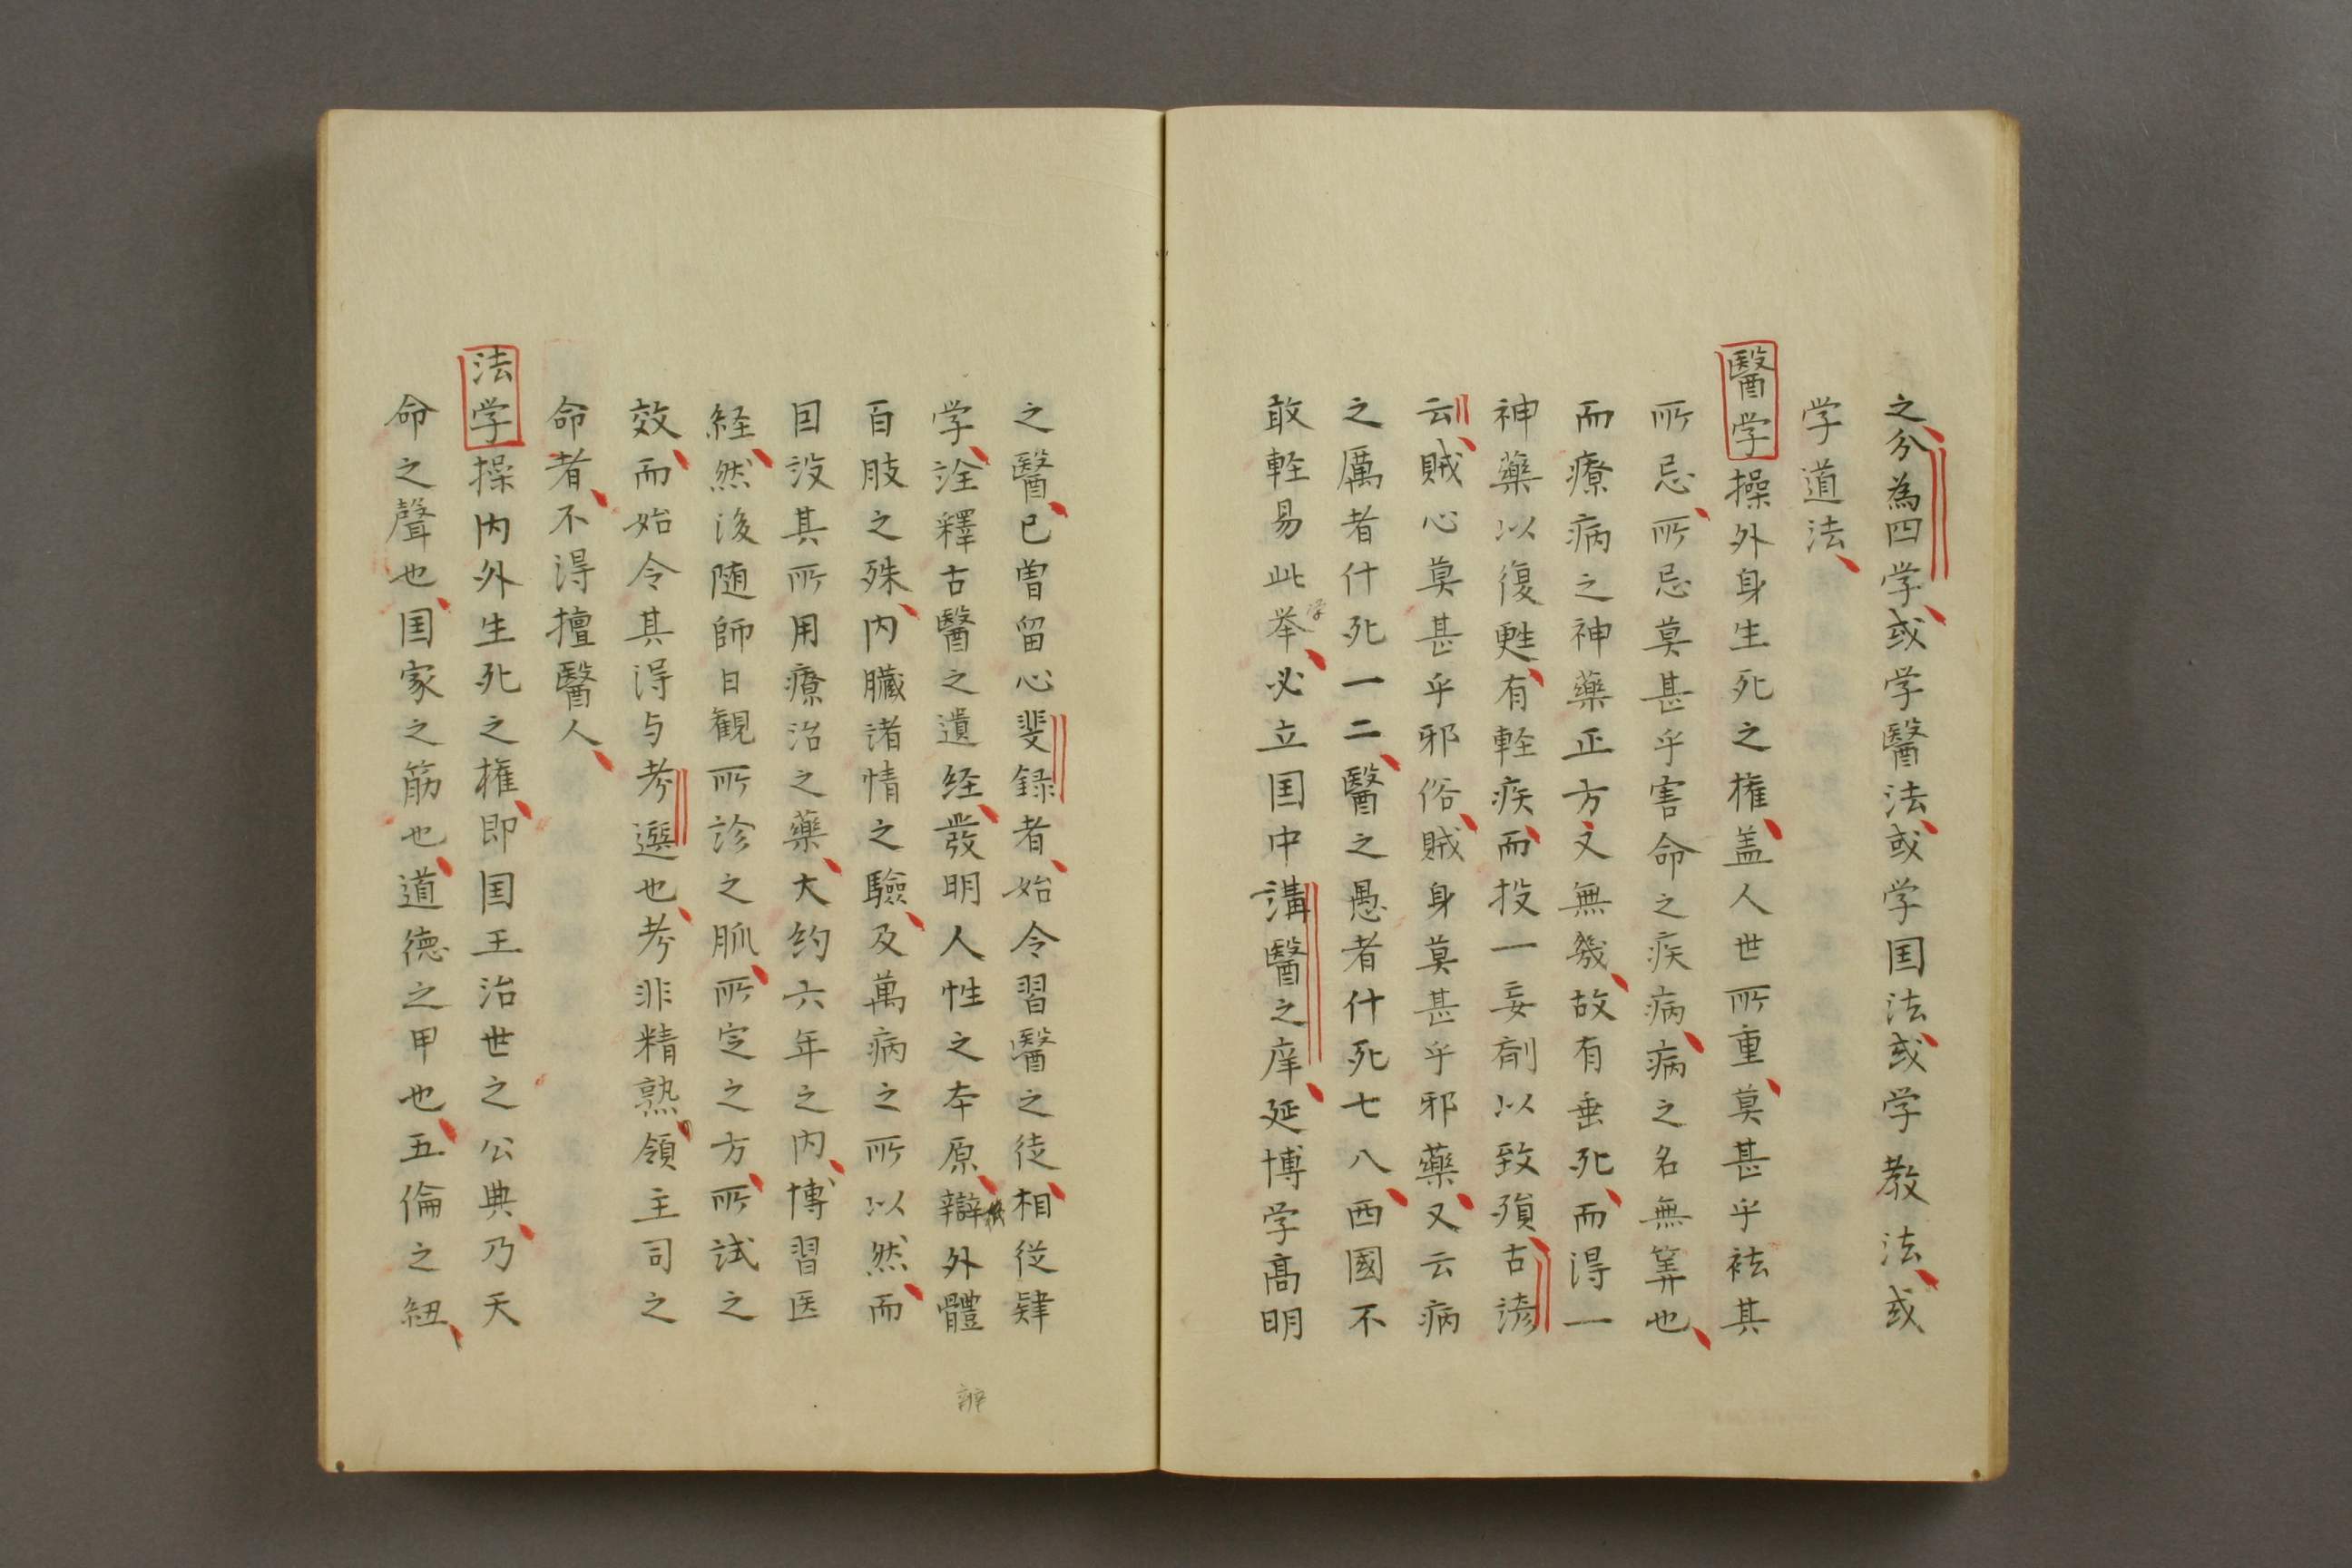 之分為四学或学醫法或学囯法或学教法或
学道法
醫学操外身生死之権盖人世所重莫甚乎袪其
所忌所忌莫甚乎害命之疾病病之名無筭也
而療病之神藥正方又無幾故有垂死而得一
神藥以復甦有軽疾而投一妄剤以致殞古諺
云賊心莫甚乎邪俗賊身莫甚乎邪藥又云病
之厲者什死一二醫之愚者什死七八西國不
敢軽易此举必立囯中講醫之庠延博学高明
学
之醫已曽留心斐録者始令習醫之徒相従肄
学詮釋古醫之遺経發明人性之本原辯外體
百肢之殊内臓諸情之驗及萬病之所以然而
因没其所用療治之藥大約六年之内博習医
経然後随師日観所診之脈所定之方所試之
效而始令其得与考選也考非精熟領主司之
命者不得擅醫人
法学操内外生死之権即囯王治世之公典乃天
命之聲也囯家之筋也道德之甲也五倫之紐
辨